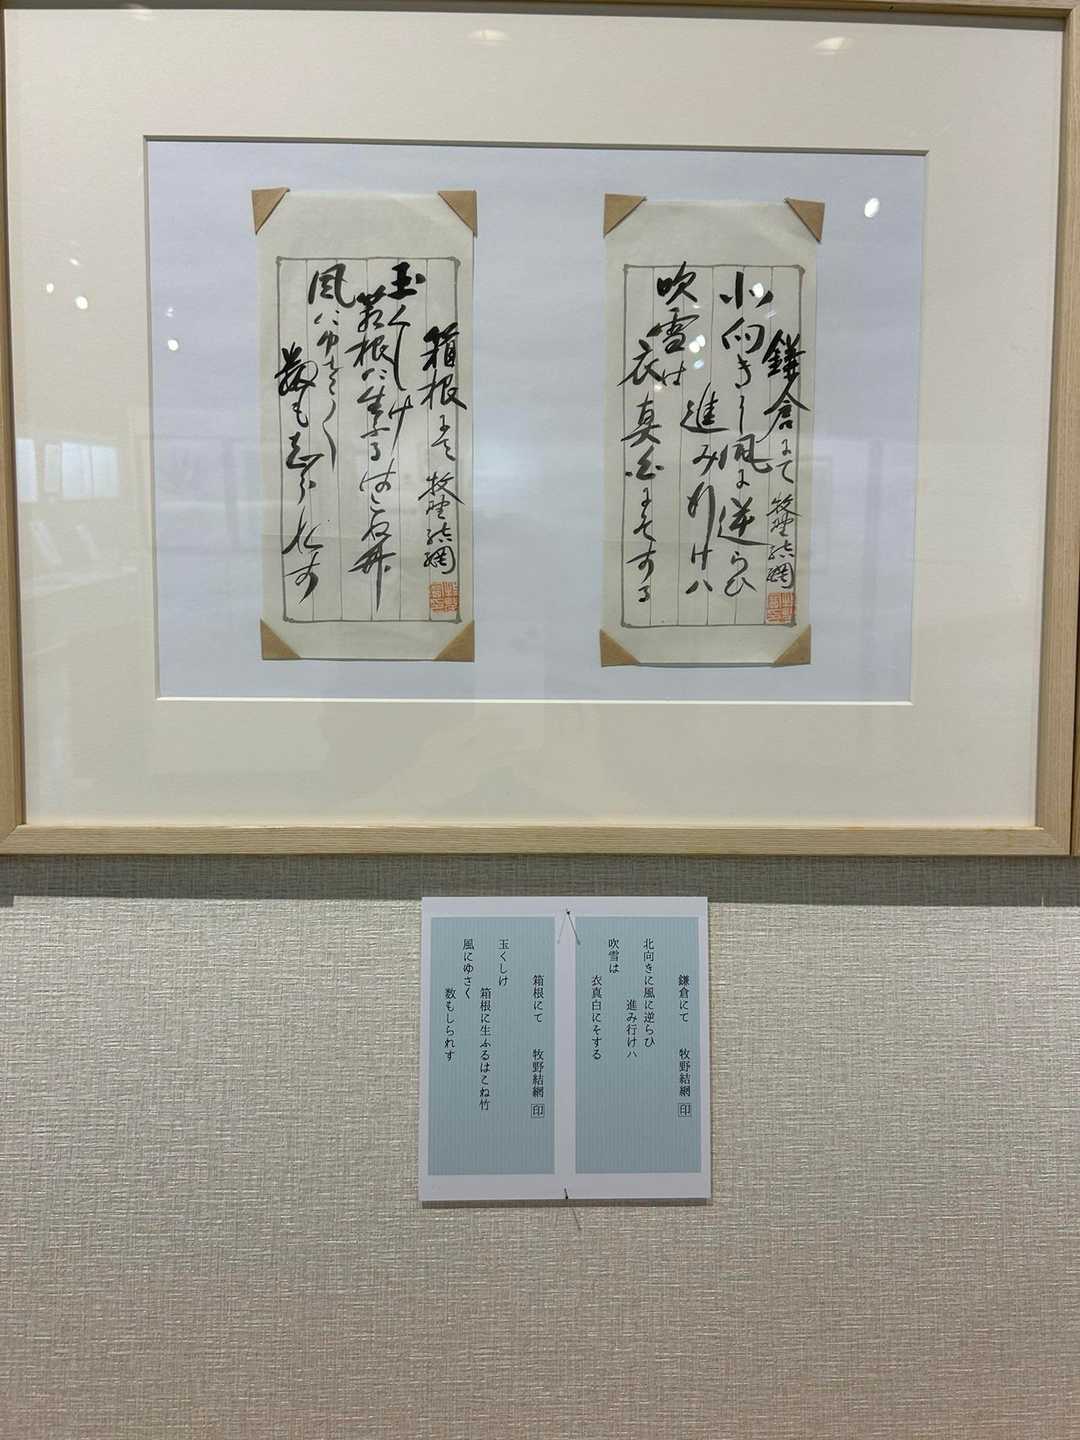 鎌倉にて 牧野結網
北向きに風に逆らひ
進み行けハ
吹雪は
衣真白にそする
箱根にて 牧野結網
玉くしけ
箱根に生ふるはこね竹
風にゆさく
数もしられす
鎌倉にて 牧野結網 印
北向きに風に逆らひ
進み行けハ
吹雪は
衣真白にそする
箱根にて 牧野結網 印
玉くしけ
箱根に生ふるはこね竹
風にゆさく
数もしられす